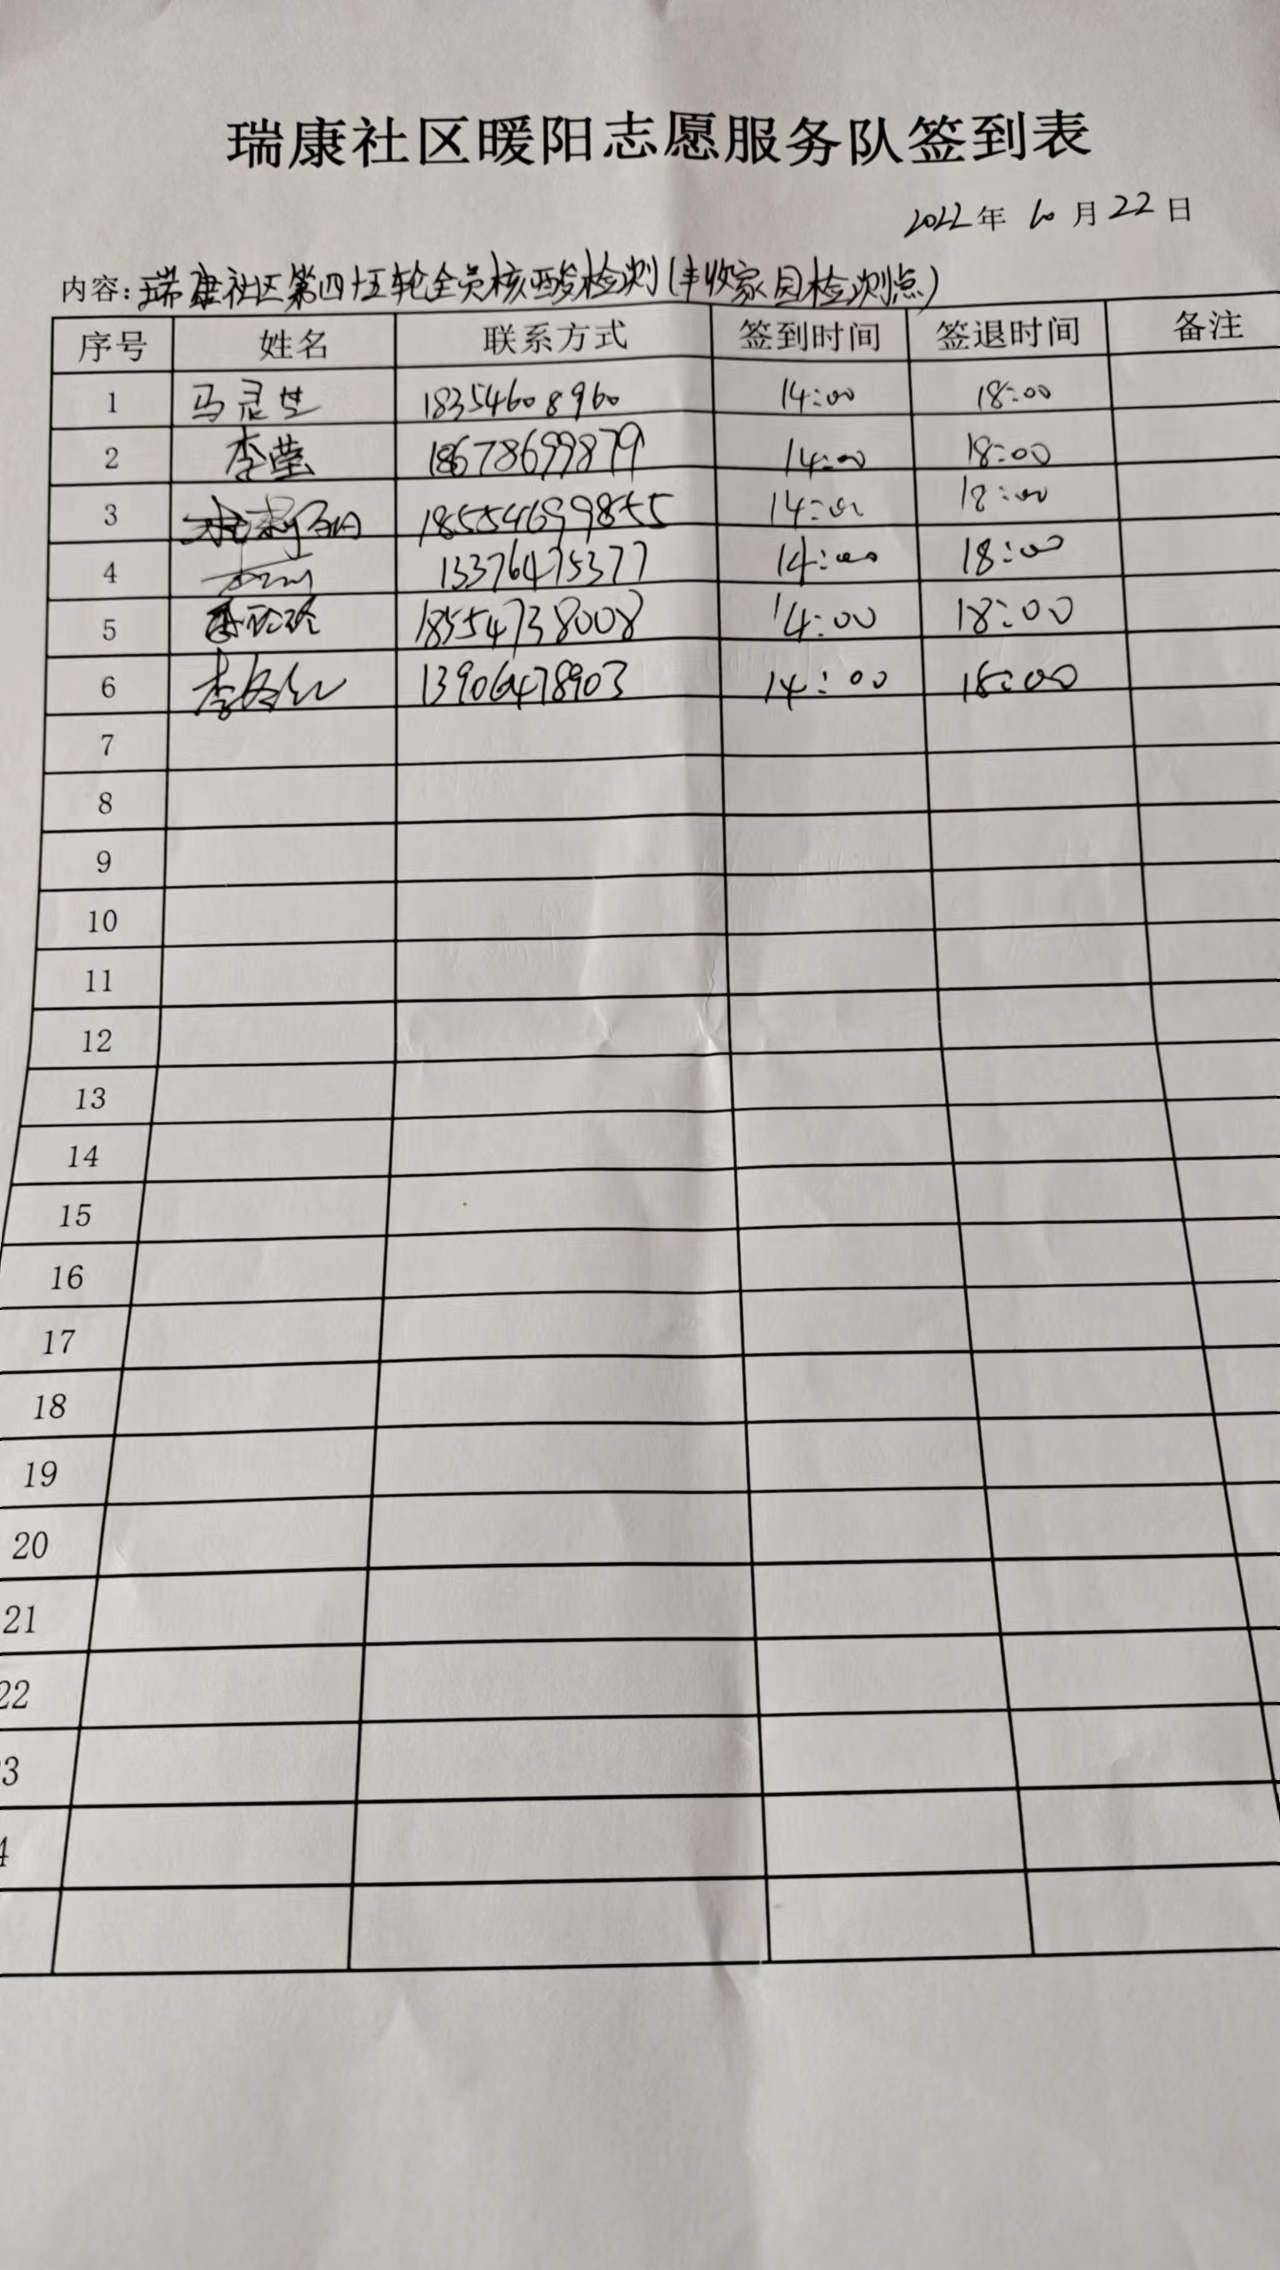 瑞康社区暖阳志愿服务队签到表
2022年 10月22日
内容:瑞康社区第四十五轮全员核酸检测(丰收家园检测点)
序号 姓名 联系方式 签到时间 签退时间 备注
1 马灵芝 18354608960 14:00 18:00
2 李莹 18678699879 14:00 18:00
3 18554699855 14:00 18:00
4 13376475377 14:00 18:00
5 18554738008 14:00 18:00
6 13906478903 14:00 18:00
7
8
9
10
11
12
13
14
15
16
17
18
19
20
21
22
3
4